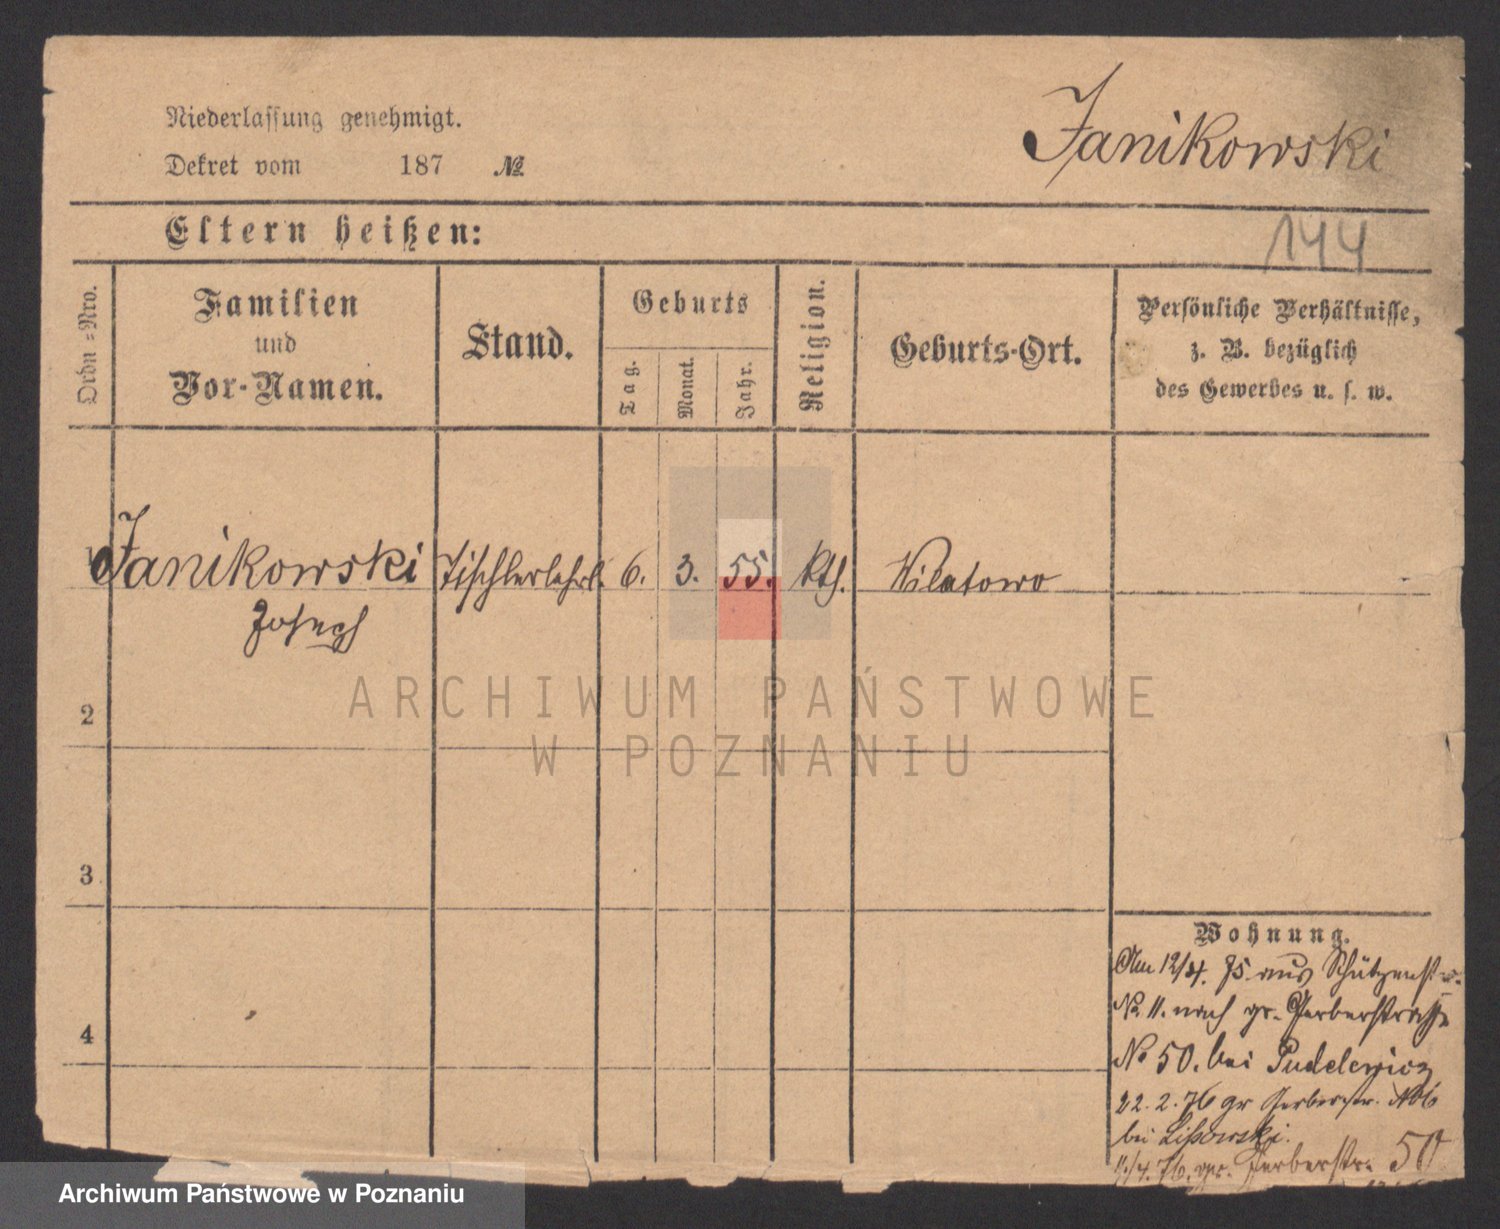 Niederlassung genehmigt.
Dekret vom 187 №
Janikowski
Eltern heißen:
144
Ordn=Nro.
Familien
und
Vor-Namen.
Stand.
Geburts
Tag.
Monat.
Jahr.
Religion.
Geburts-Ort.
Persönliche Verhältnisse,
z. B. bezüglich
des Gewerbes u. s. w.
Janikowski Tischlerlehrl. 6. 3. 55. kth. Wilatowo
Joseph
ARCHIWUM PAŃSTWOWE
W POZNANIU
2
3
4
Wohnung.
Am 12/4. 75. aus Schützenstr.
No 11. nach gr. Gerberstrasse
No 50. bei Pudelewicz
22. 2. 76 gr Gerberstr. No 6
bei Lissowski.
11/4. 76. gr. Gerberstr. 50
Archiwum Państwowe w Poznaniu